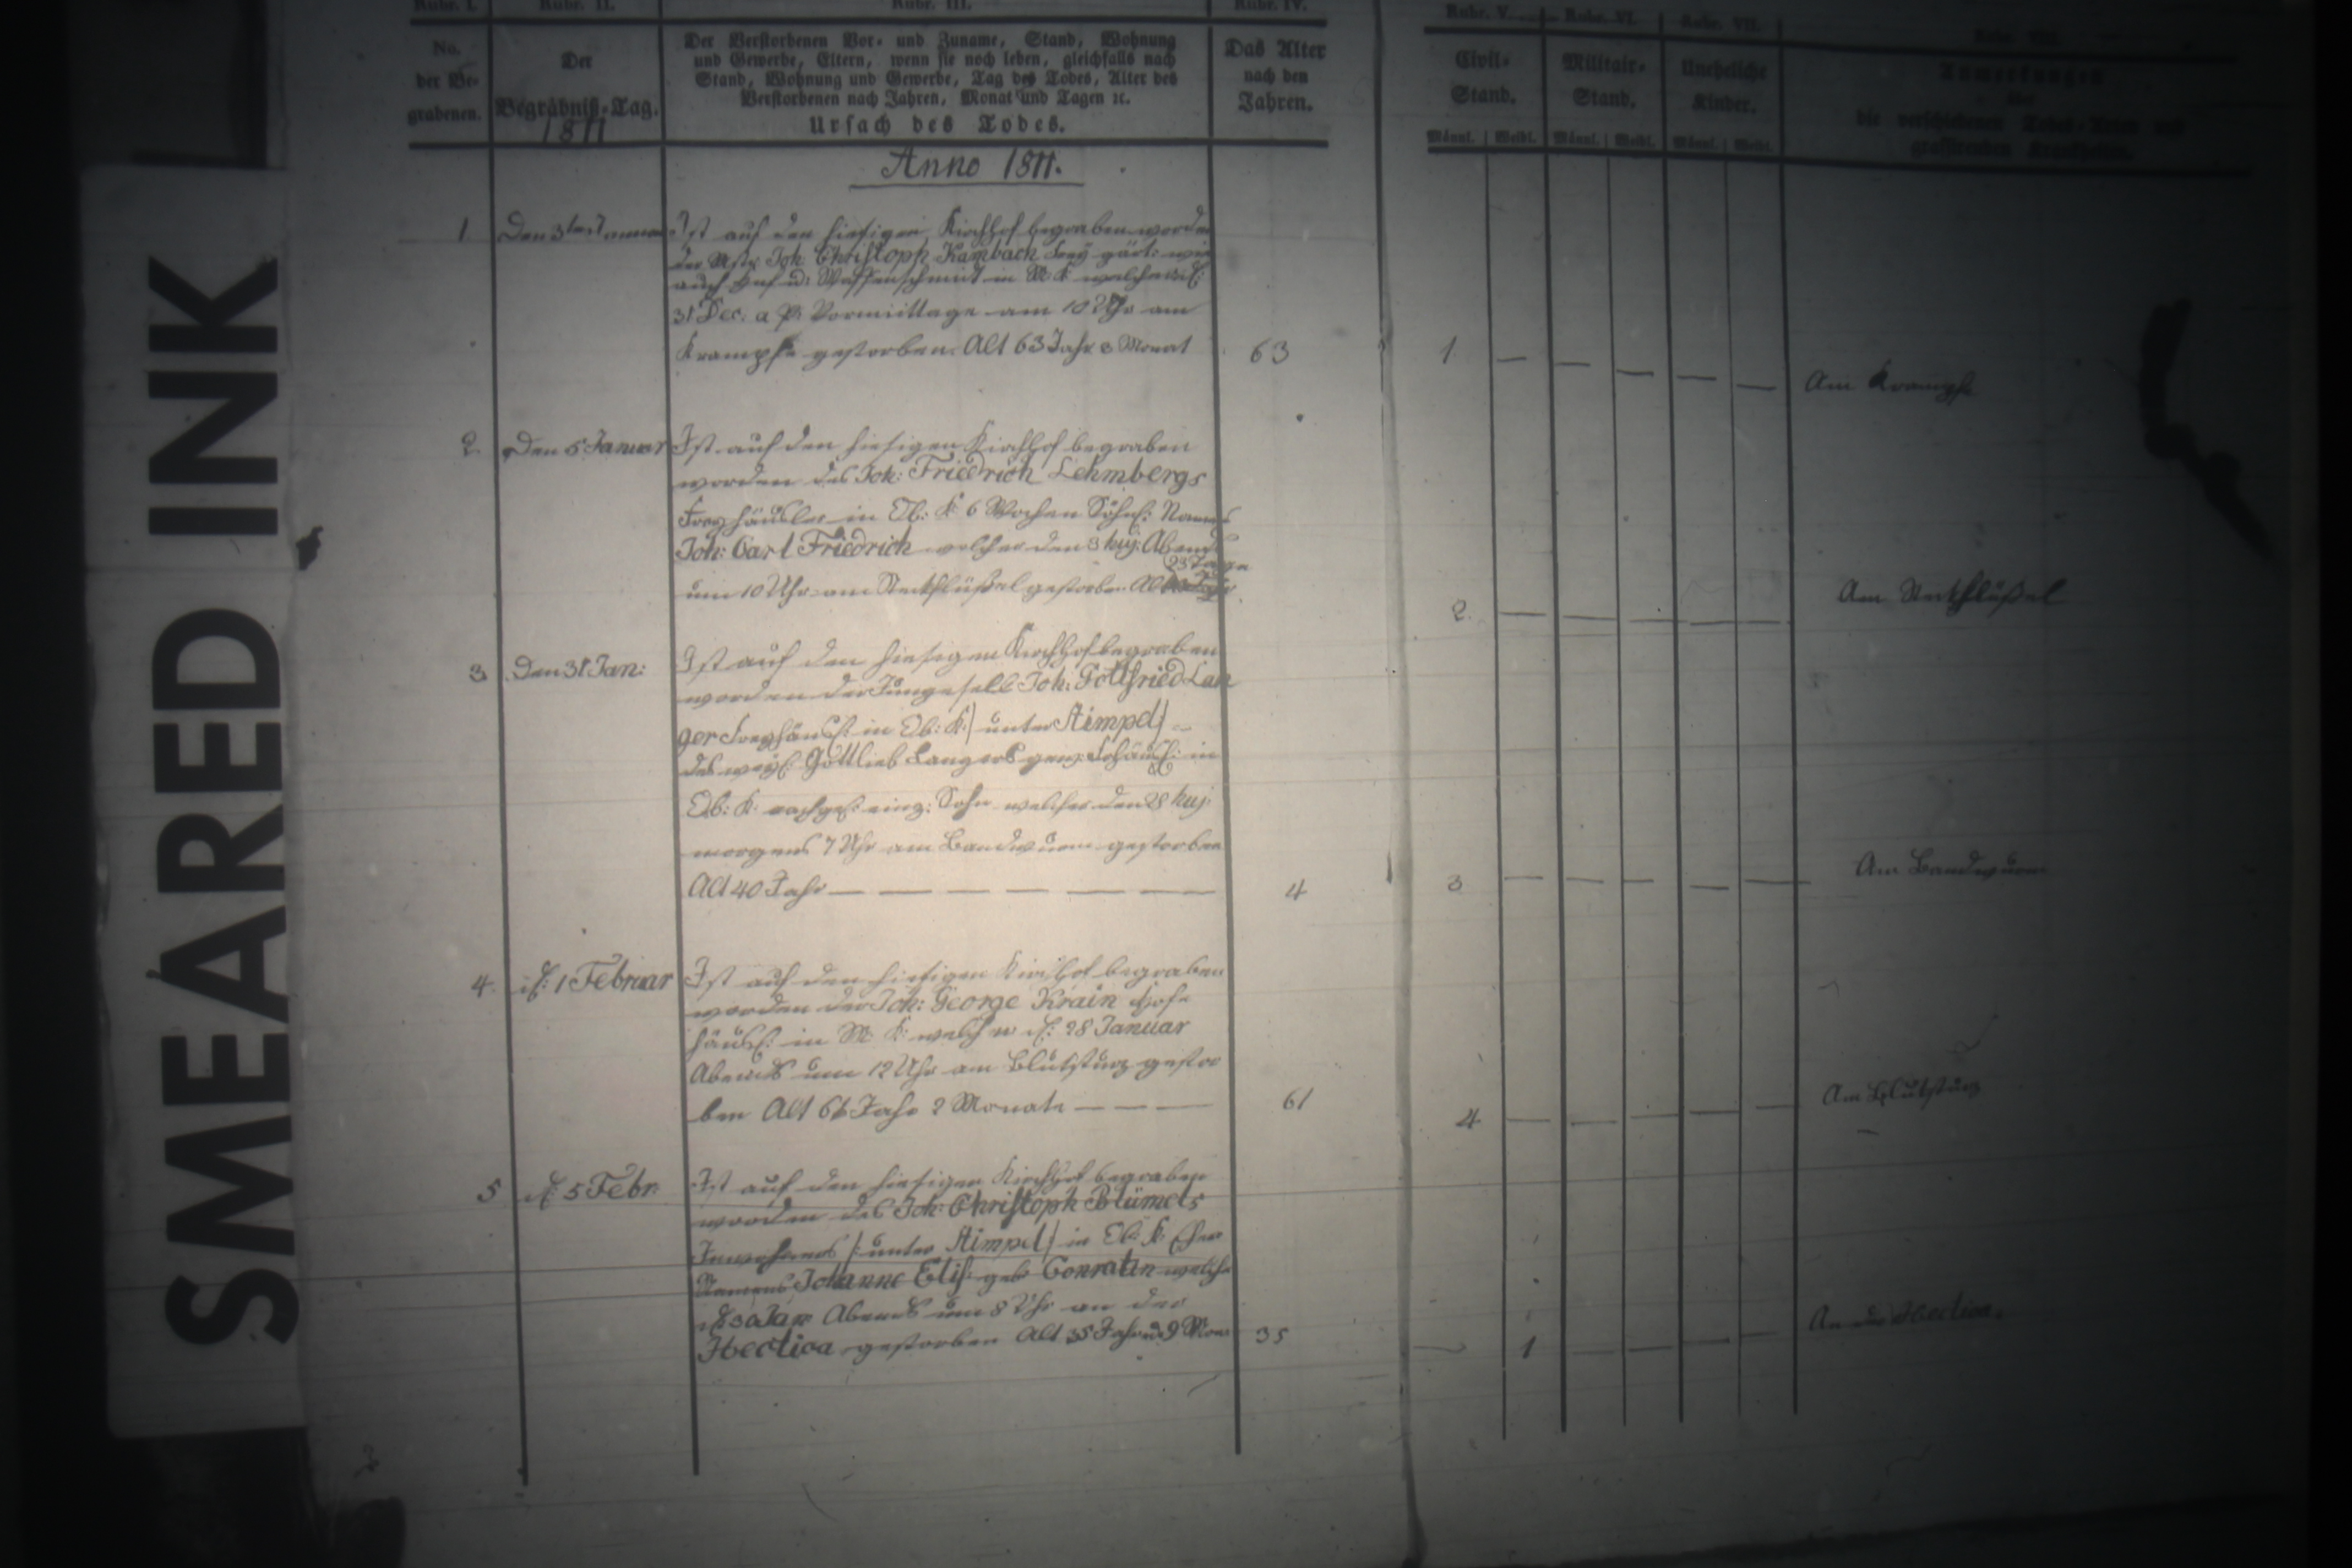 SMEARED INK
Rubr. I. Rubr. II. Rubr. III. Rubr. IV. Rubr. V. Rubr. VI. Rubr. VII.
No. der Begrabenen.
Der Begräbniß-Tag.
1811
Der Verstorbenen Vor- und Zuname, Stand, Wohnung
und Gewerbe, Eltern, wenn sie noch leben, gleichfalls nach
Stand, Wohnung und Gewerbe, Tag des Todes, Alter des
Verstorbenen nach Jahren, Monat und Tagen ꝛc.
Ursach des Todes.
Das Alter
nach den
Jahren.
Civil-
Stand.
Militair-
Stand.
Uneheliche
Kinder.
Anmerkungen
die verschiedenen Todes-Arten und
grassirenden Krankheiten.
Männl. Weibl. Männl. Weibl. Männl. Weibl.
Anno 1811.
1. Den 3ten Januar Ist auf den hiesigen Kirchhof begraben worden
der Joh: Christoph Kambach Frey gärt: wie
auch Huf u: Waffenschmidt in M: K: welcher d:
31 Dec: a. p. Vormittage am 10 Uhr am
Krampfe gestorben. Alt 63 Jahr 3 Monat 63 1 — — — — — Am Krampfe
2. Den 5 Januar Ist auf den hiesigen Kirchhof begraben
worden des Joh: Friedrich Lehmbergs
Freyhäusler in Ob: K: 6 Wochen Söhnl: Namens
Joh: Carl Friedrich welcher den 3 huj: Abends
23 Tage
um 10 Uhr am Steckflüßel gestorben. Alt 2. — — — — — Am Steckflüßel
3 Den 31 Jan: Ist auf den hiesigen Kirchhof begraben
worden der Junggesell Joh: Gottfried Lan
ger Freyhäusl: in Ob: K: unter
des weyl: Gottlieb Langers gew: Frhäusl: in
Ob: K: nachgel: einz: Sohn welcher den 28 huj:
morgens 7 Uhr am Bandwurm gestorben
Alt 40 Jahr — — — — — — 4 3 — — — — — Am Bandwurm
4. d: 1 Februar Ist auf den hiesigen Kirchhof begraben
worden der Joh: George Krain Hofe
häusl: in M: K: welcher d: 28 Januar
Abends um 12 Uhr am Blutsturz gestor
ben Alt 61 Jahr 2 Monate — — — 61 4 — — — — — Am Blutsturz
5 d: 5 Febr: Ist auf den hiesigen Kirchhof begraben
worden des Joh: Christoph Blümels
Inwohners unter in Ob: K: Ehew
Namens Johanne Elis: geb: Conratin welche
d: 30 Jan: Abends um 8 Uhr an der
Hectica gestorben Alt 35 Jahr u: 9 Mon: 35 — 1 — — — — An der Hectica.